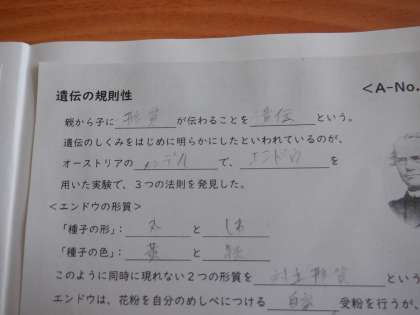 遺伝の規則性
<A-No.
親から子に 形質 が伝わることを 遺伝 という。
遺伝のしくみをはじめに明らかにしたといわれているのが、
オーストリアの メンデル で、 エンドウ を
用いた実験で、３つの法則を発見した。
<エンドウの形質>
「種子の形」： 丸 と しわ
「種子の色」： 黄 と 緑
このように同時に現れない２つの形質を 対立形質 という
エンドウは、花粉を自分のめしべにつける 自家 受粉を行うが、